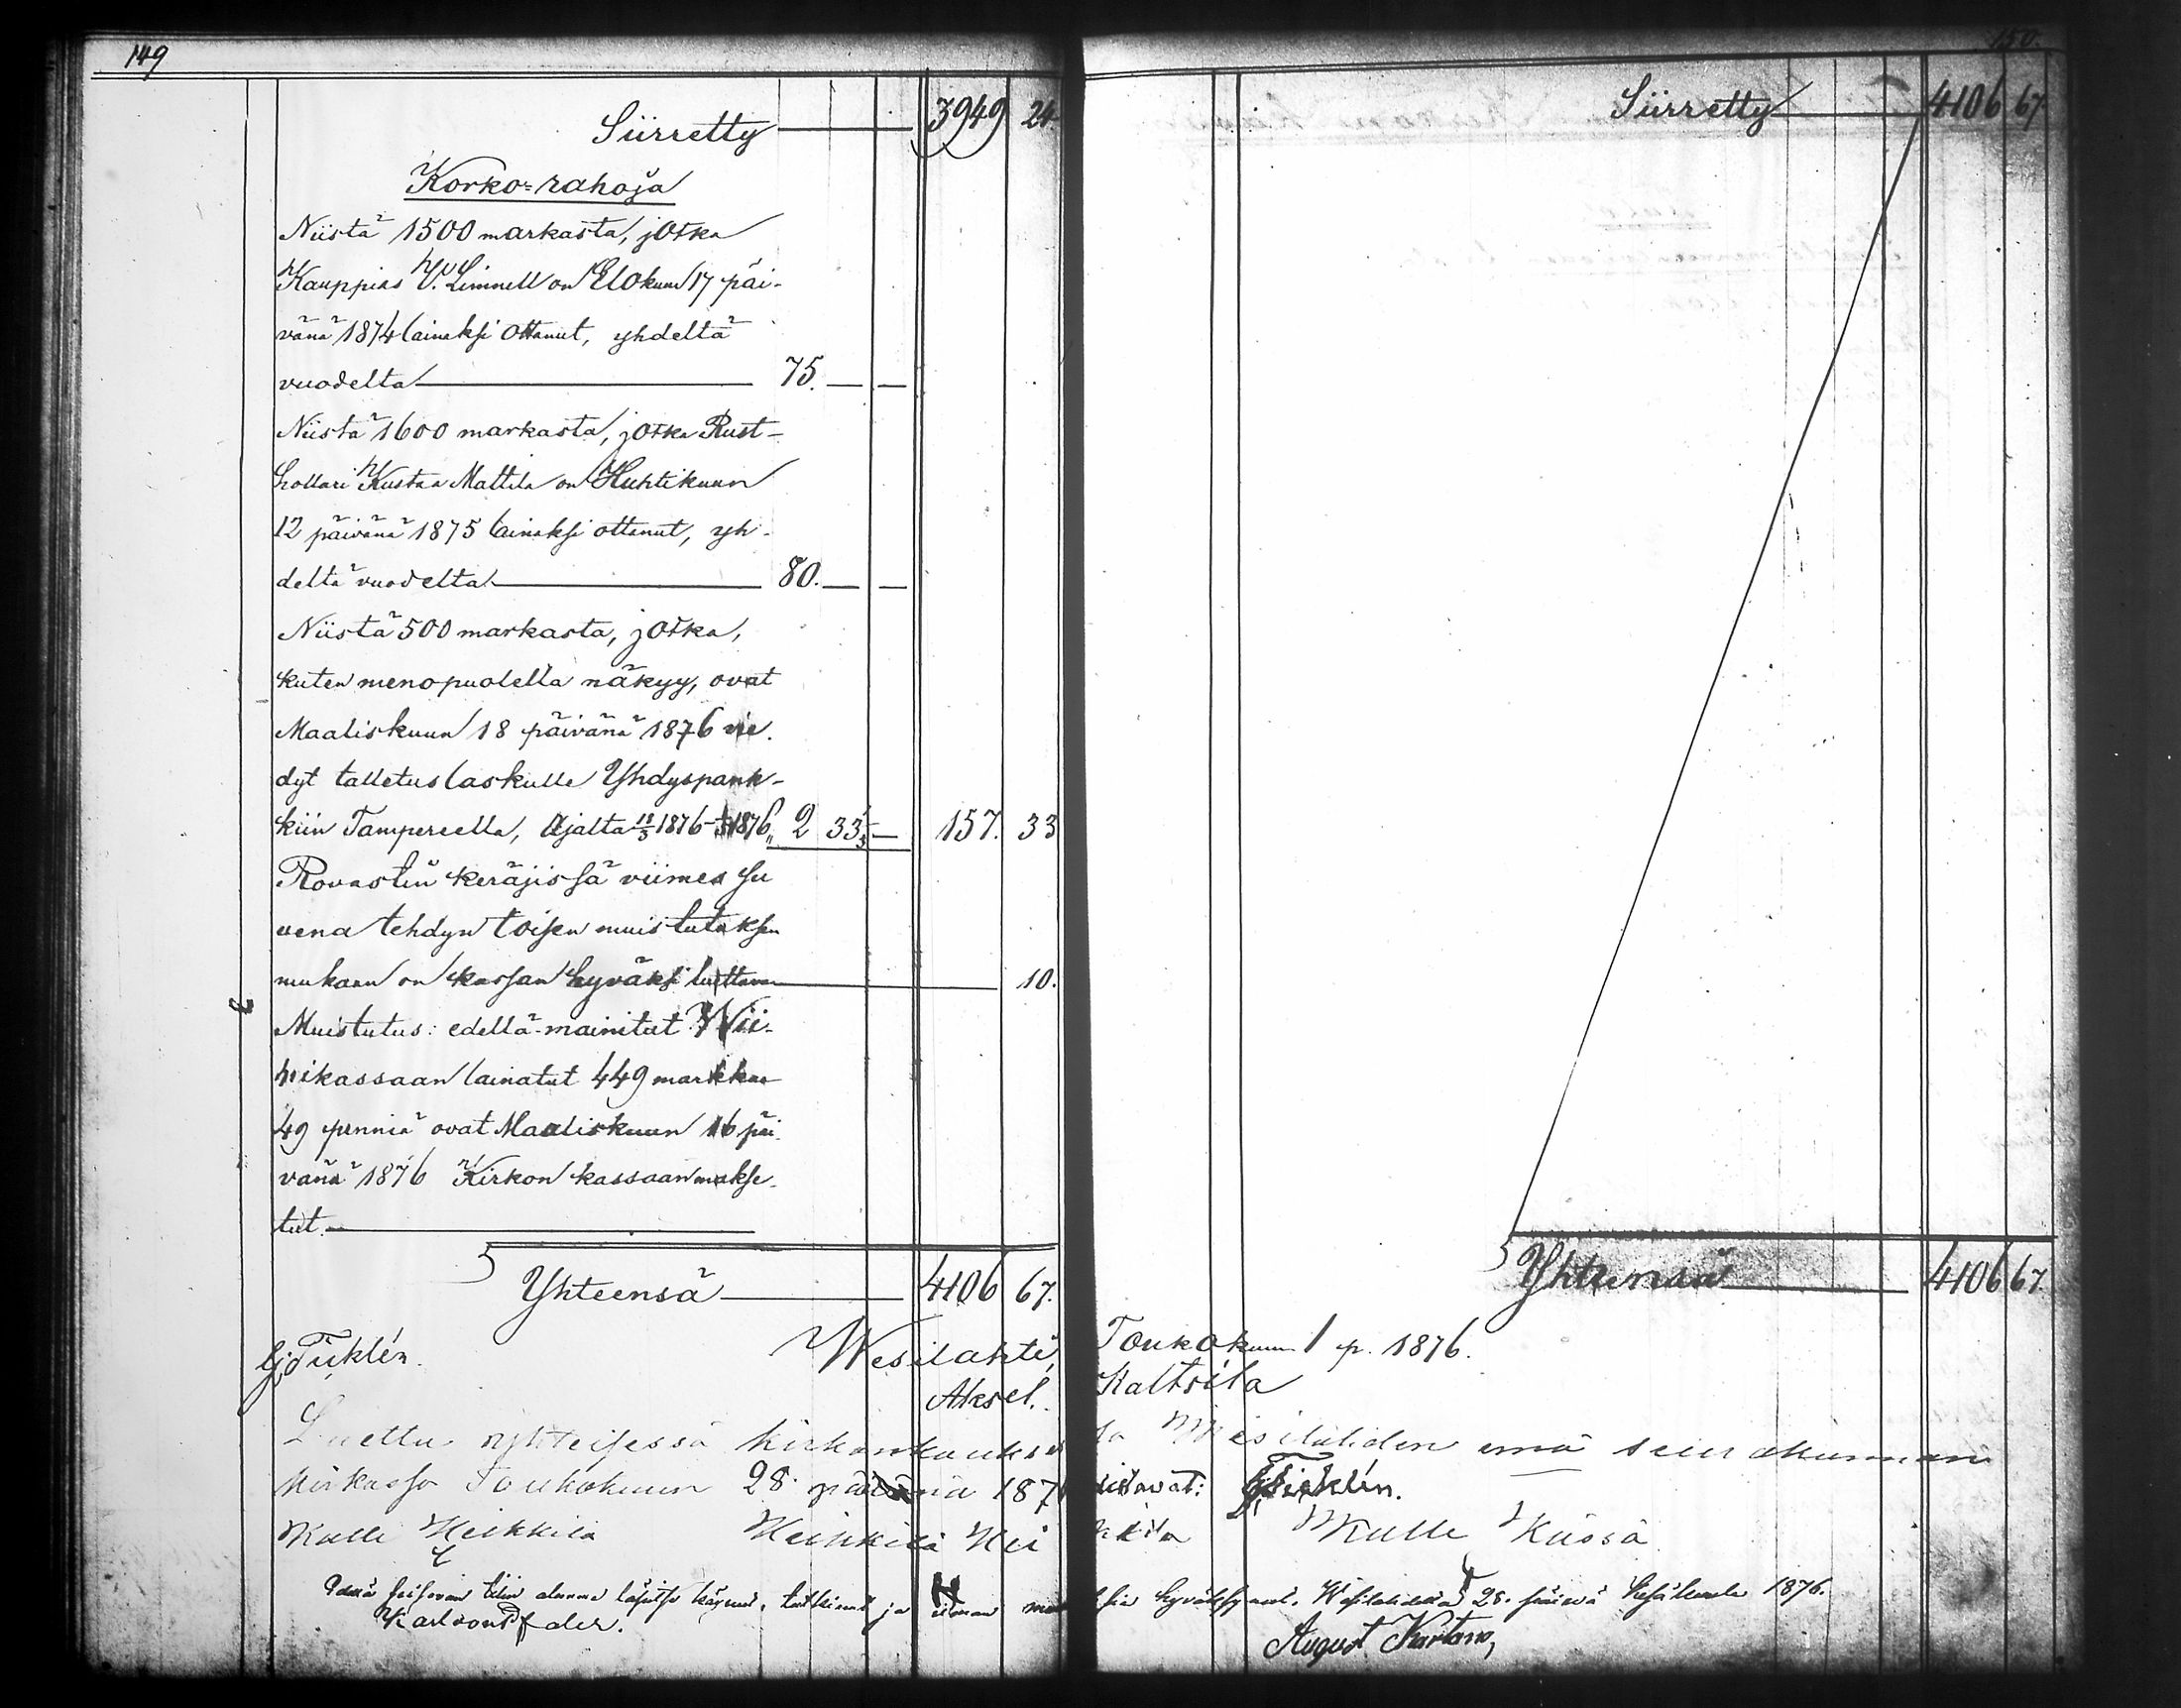 149
Siirretty 3949 24.
Korko-rahoja
Niistä 1500 markasta, jotka
Kauppias V. Limnell on Elokuun 17 päi-
vänä 1874 lainaksi ottanut, yhdeltä
vuodelta 75. — —
Niistä 1600 markasta, jotka Rust-
hollari Kustaa Mattila on Huhtikuun
12 päivänä 1875 lainaksi ottanut, yh-
deltä vuodelta 80. — —
Niistä 500 markasta, jotka,
kuten menopuolella näkyy, ovat
Maaliskuun 18 päivänä 1876 vie-
dyt talletuslaskulle Yhdyspank-
kiin Tampereella, Ajalta 18/3 1876 - 1876, 2 33 — 157. 33
Rovastin keräjissä viimes su
vena tehdyn toisen muistutuksen
mukaan on kassan hyväksi luettava 10.
Muistutus: edellä-mainitut Wii-
nikassaan lainatut 449 markkaa
49 penniä ovat Maaliskuun 16 päi-
vänä 1876 Kirkon kassaan makse-
tut.
Yhteensä 4106 67.
150.
Siirretty 4106 67.
Yhteensä 4106 67.
Gj. Ticklén. Wesilahti, Toukokuun 1 p. 1876.
Aksel. Kaltsila
Luettu yhteisessä kirkonkouksessa Wesilahden emä seurakunnan
kirkossa Toukokuun 28. päivänä 187 distavat: Gj. Ticklén.
Kalle Heikkilä Heikkilä Kalle Kässä
tilin alamme läpitse käyneet, tutkineet ja ilman hyväksyneet. Wesilahdella 28. päivä Kesäkuuta 1876.
Karl von Pfaler. August Kartano,